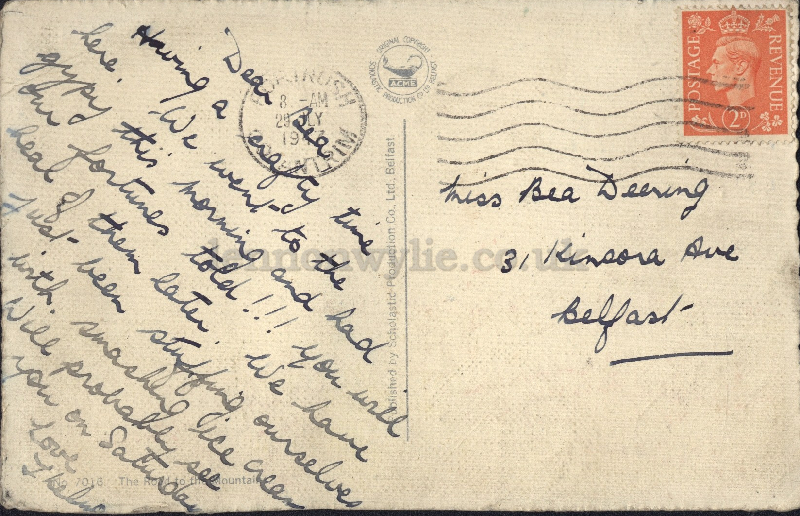 Dear Bea
Having a crafty time
here. We went to the
gypsy this morning and had
our fortunes told!!! You will
hear of them later. We have
just been stuffing ourselves
with smashing ice cream
Will probably see
you on Saturday
Love
Thelma
No. 7016 The Road to the Mountains
Published by Scholastic Production Co., Ltd., Belfast
ORIGINAL COPYRIGHT
SCHOLASTIC PRODUCTION CO LTD BELFAST
ACME
PORTRUSH
8 - AM
CO. ANTRIM
POSTAGE
REVENUE
2D
Miss Bea Deering
31 Kincora Ave
Belfast
lennonwylie.co.uk